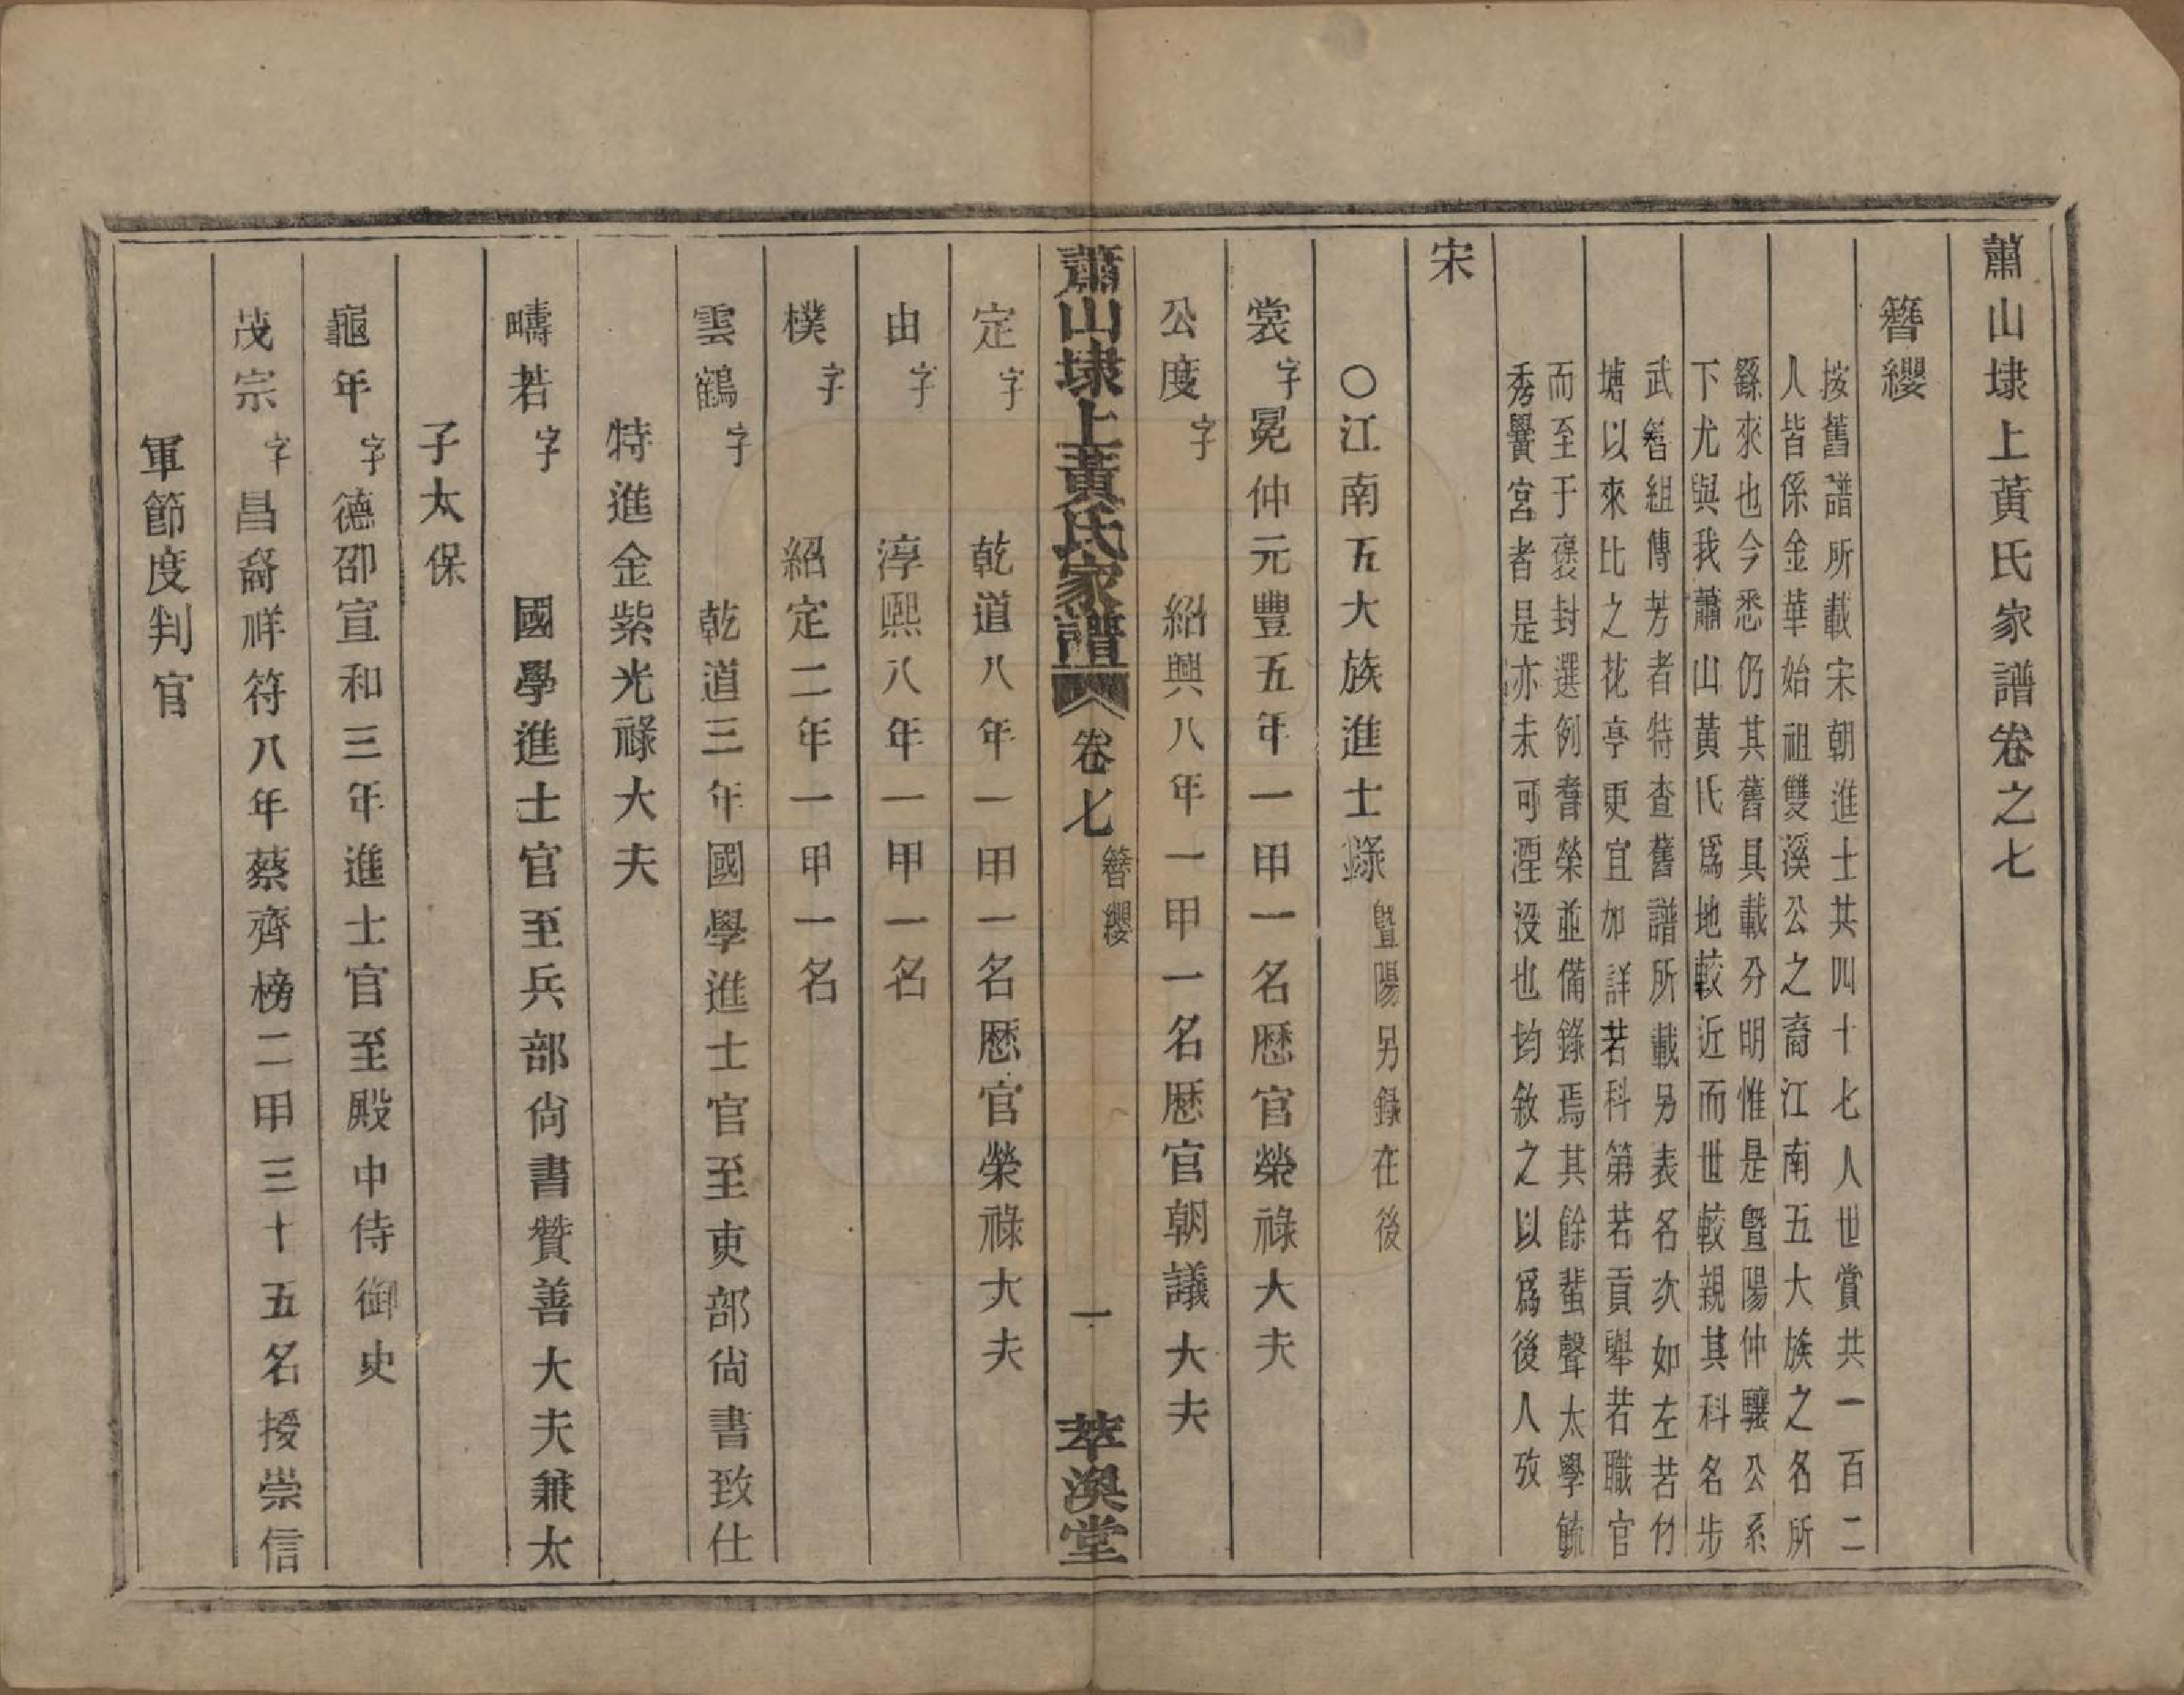 蕭山埭上黃氏家譜卷之七
簪纓
按舊譜所載宋朝進士共四十七人世賞共一百二
人皆係金華始祖雙溪公之裔江南五大族之名所
繇來也今悉仍其舊具載分明惟是暨陽仲驤公系
下尤與我蕭山黃氏爲地較近而世較親其科名步
武簪組傳芳者特查舊譜所載另表名次如左若竹
塘以來比之花亭更宜加詳若科第若貢舉若職官
而至于褒封選例耆榮並備錄焉其餘蜚聲太學毓
秀黌宮者是亦未可湮沒也均敘之以爲後人攷
宋
○江南五大族進士錄暨陽另錄在後
裳字冕仲元豐五年一甲一名歷官榮祿大夫
公度字 紹興八年一甲一名歷官朝議大夫
蕭山埭上黃氏家譜 卷七 簪纓 一 萃渙堂
定字 乾道八年一甲一名歷官榮祿大夫
由字 淳熙八年一甲一名
樸字 紹定二年一甲一名
雲鶴字 乾道三年國學進士官至吏部尙書致仕
特進金紫光祿大夫
疇若字 國學進士官至兵部尙書贊善大夫兼太
子太保
龜年字德邵宣和三年進士官至殿中侍御史
茂宗字昌裔祥符八年蔡齊榜二甲三十五名授崇信
軍節度判官